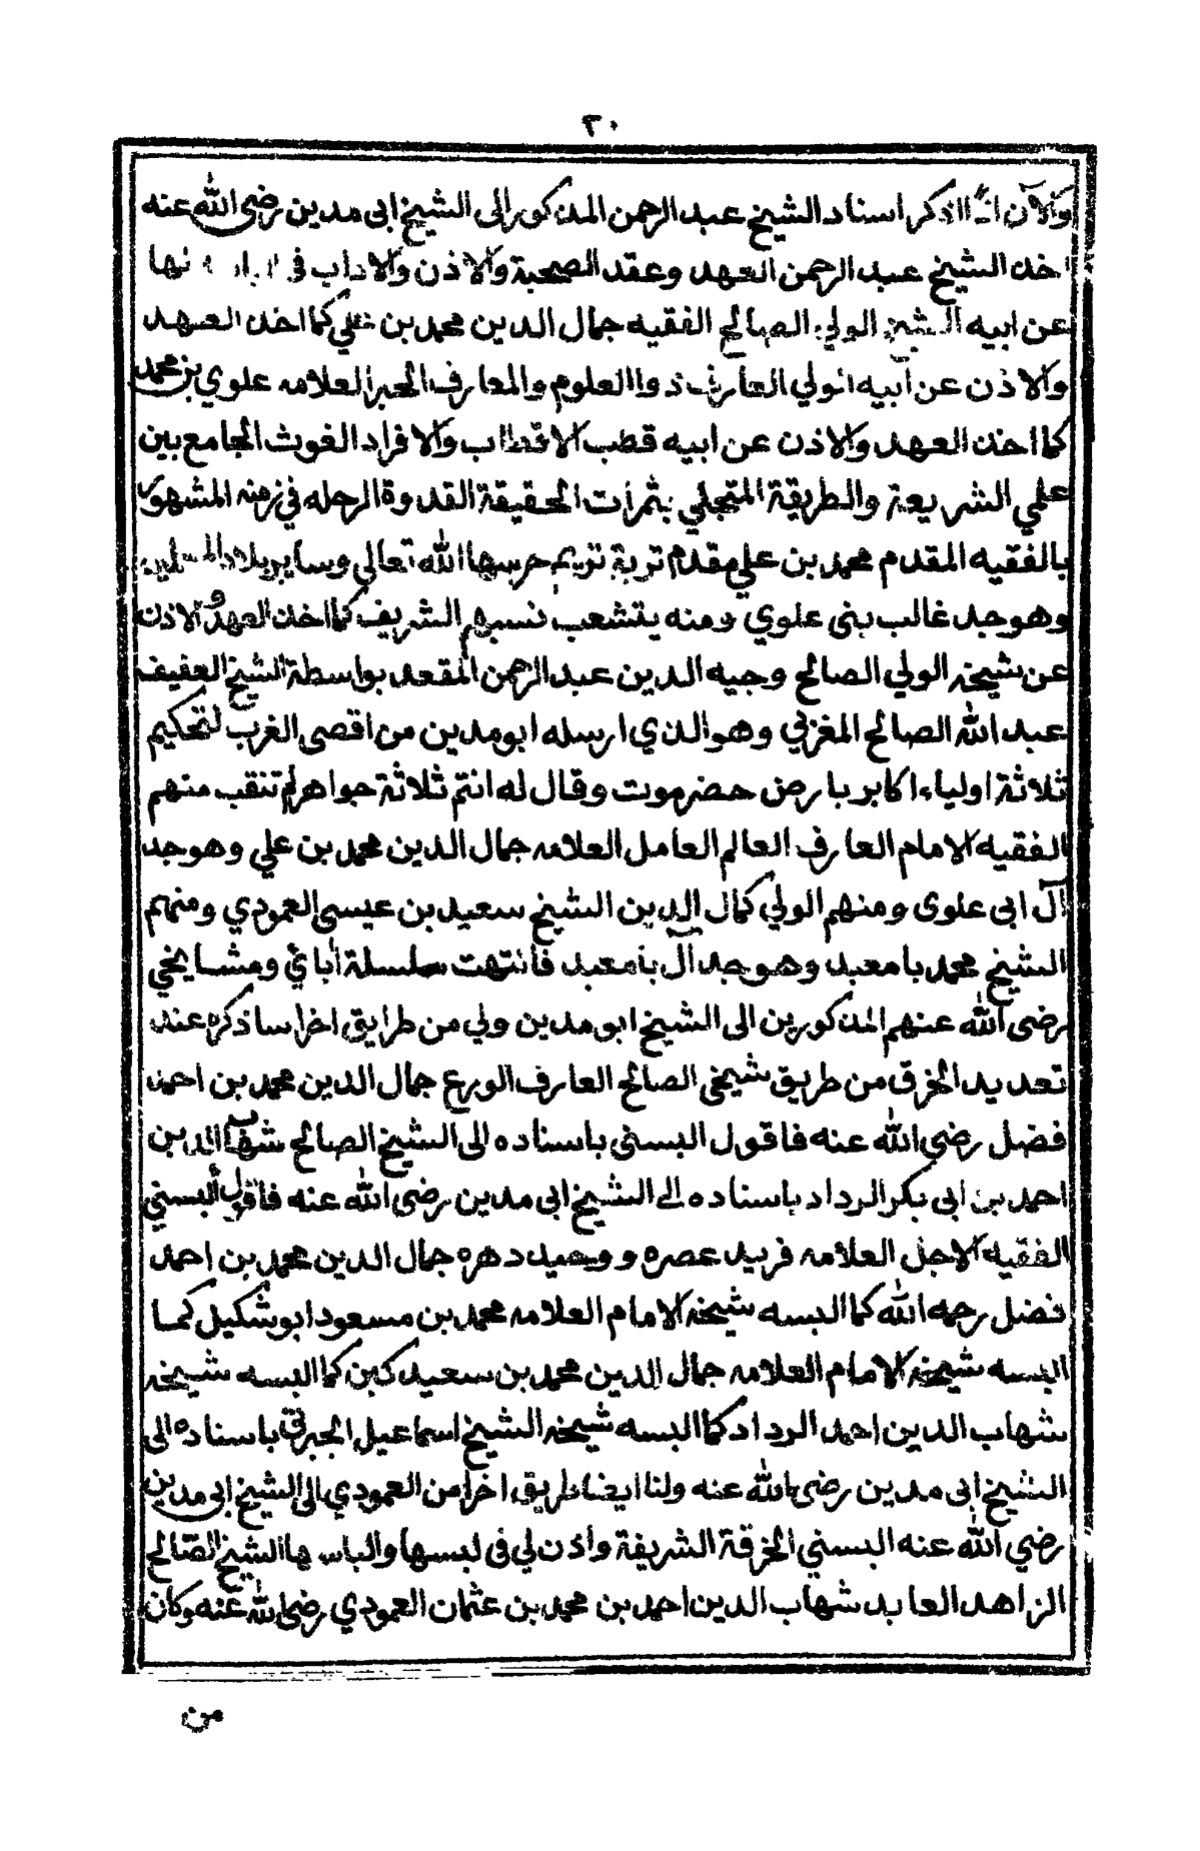 ٣٠
والآن انا اذكر اسناد الشيخ عبد الرحمن المذكور الى الشيخ ابى مدين رضى الله عنه
اخذ الشيخ عبد الرحمن العهد وعقد الصحبة والاذن والاداب فى
عن ابيه الشيخ الولي الصالح الفقيه جمال الدين محمد بن علي كما اخذ العهد
والاذن عن ابيه الولي العارف ذو العلوم والمعارف الحبر العلامه علوي بن محمد
كما اخذ العهد والاذن عن ابيه قطب الاقطاب والافراد الغوث الجامع بين
علمي الشريعة والطريقة المتجلي بثمرات الحقيقة القدوة الرحله في زمنه المشهور
بالفقيه المقدم محمد بن علي مقدم تربة تريم حرسها الله تعالى وساير بلاد المسلمين
وهو جد غالب بنى علوي ومنه يتشعب نسبهم الشريف كما اخذ العهد والاذن
عن شيخه الولي الصالح وجيه الدين عبد الرحمن المقعد بواسطة الشيخ العفيف
عبد الله الصالح المغربي وهو الذي ارسله ابو مدين من اقصى الغرب لتحكيم
ثلاثة اولياء اكابر بارض حضرموت وقال له انتم ثلاثة جواهر لم تنقب منهم
الفقيه الامام العارف العالم العامل العلامه جمال الدين محمد بن علي وهو جد
آل ابى علوى ومنهم الولي كمال الدين الشيخ سعيد بن عيسى العمودي ومنهم
الشيخ محمد با معبد وهو جد آل با معبد فانتهت سلسلة أبائي ومشايخي
رضى الله عنهم المذكورين الى الشيخ ابو مدين ولي من طرايق اخرا ساذكره عند
تعديد الخرق من طريق شيخى الصالح العارف الورع جمال الدين محمد بن احمد
فضل رضي الله عنه فاقول البسنى باسناده الى الشيخ الصالح شهاب الدين
احمد بن ابى بكر الرداد باسناده الى الشيخ ابى مدين رضى الله عنه فاقول ألبسني
الفقيه الاجل العلامه فريد عصره ووحيد دهره جمال الدين محمد بن احمد
فضل رحمه الله كما البسه شيخه الامام العلامه محمد بن مسعود ابو شكيل كما
البسه شيخه الامام العلامه جمال الدين محمد بن سعيد كبن كما البسه شيخه
شهاب الدين احمد الرداد كما البسه شيخه الشيخ اسماعيل الجبرتى باسناده الى
الشيخ ابى مدين رضى الله عنه ولنا ايضا طريق اخرا من العمودي الى الشيخ ابى مدين
رضي الله عنه البسني الخرقة الشريفة وأذن لي فى لبسها والباسها الشيخ الصالح
الزاهد العابد شهاب الدين احمد بن محمد بن عثمان العمودي رضى الله عنه وكان
من